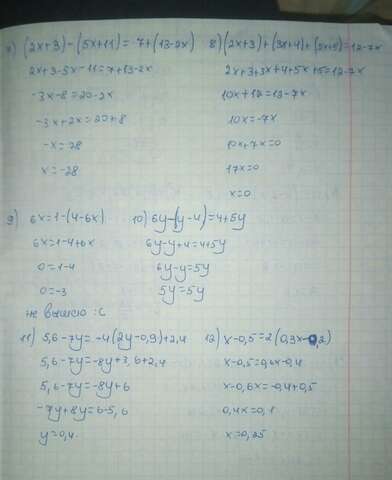 7) (2x+3)-(5x+11)=7+(13-2x)
2x+3-5x-11=7+13-2x
-3x-8=20-2x
-3x+2x=20+8
-x=28
x=-28
8) (2x+3)+(3x+4)+(5x+5)=12-7x
2x+3+3x+4+5x+5=12-7x
10x+12=12-7x
10x=-7x
10x+7x=0
17x=0
x=0
9) 6x=1-(4-6x)
6x=1-4+6x
0=1-4
0=-3
не вышло :C
10) 6y-(y-4)=4+5y
6y-y+4=4+5y
6y-y=5y
5y=5y
11) 5,6-7y=-4(2y-0,9)+2,4
5,6-7y=-8y+3,6+2,4
5,6-7y=-8y+6
-7y+8y=6-5,6
y=0,4
12) x-0,5=2(0,3x-0,2)
x-0,5=0,6x-0,4
x-0,6x=-0,4+0,5
0,4x=0,1
x=0,25